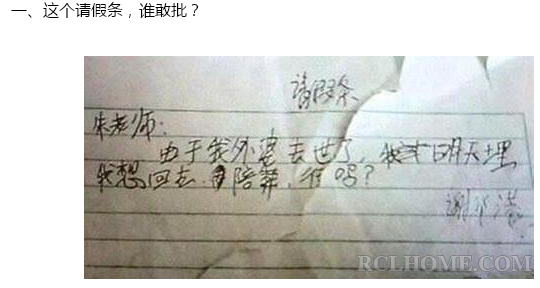 一、这个请假条，谁敢批？
请假条
朱老师：
由于我外婆去世了，明天埋
我想回去陪葬，行吗？
谢
RCLHOME.COM